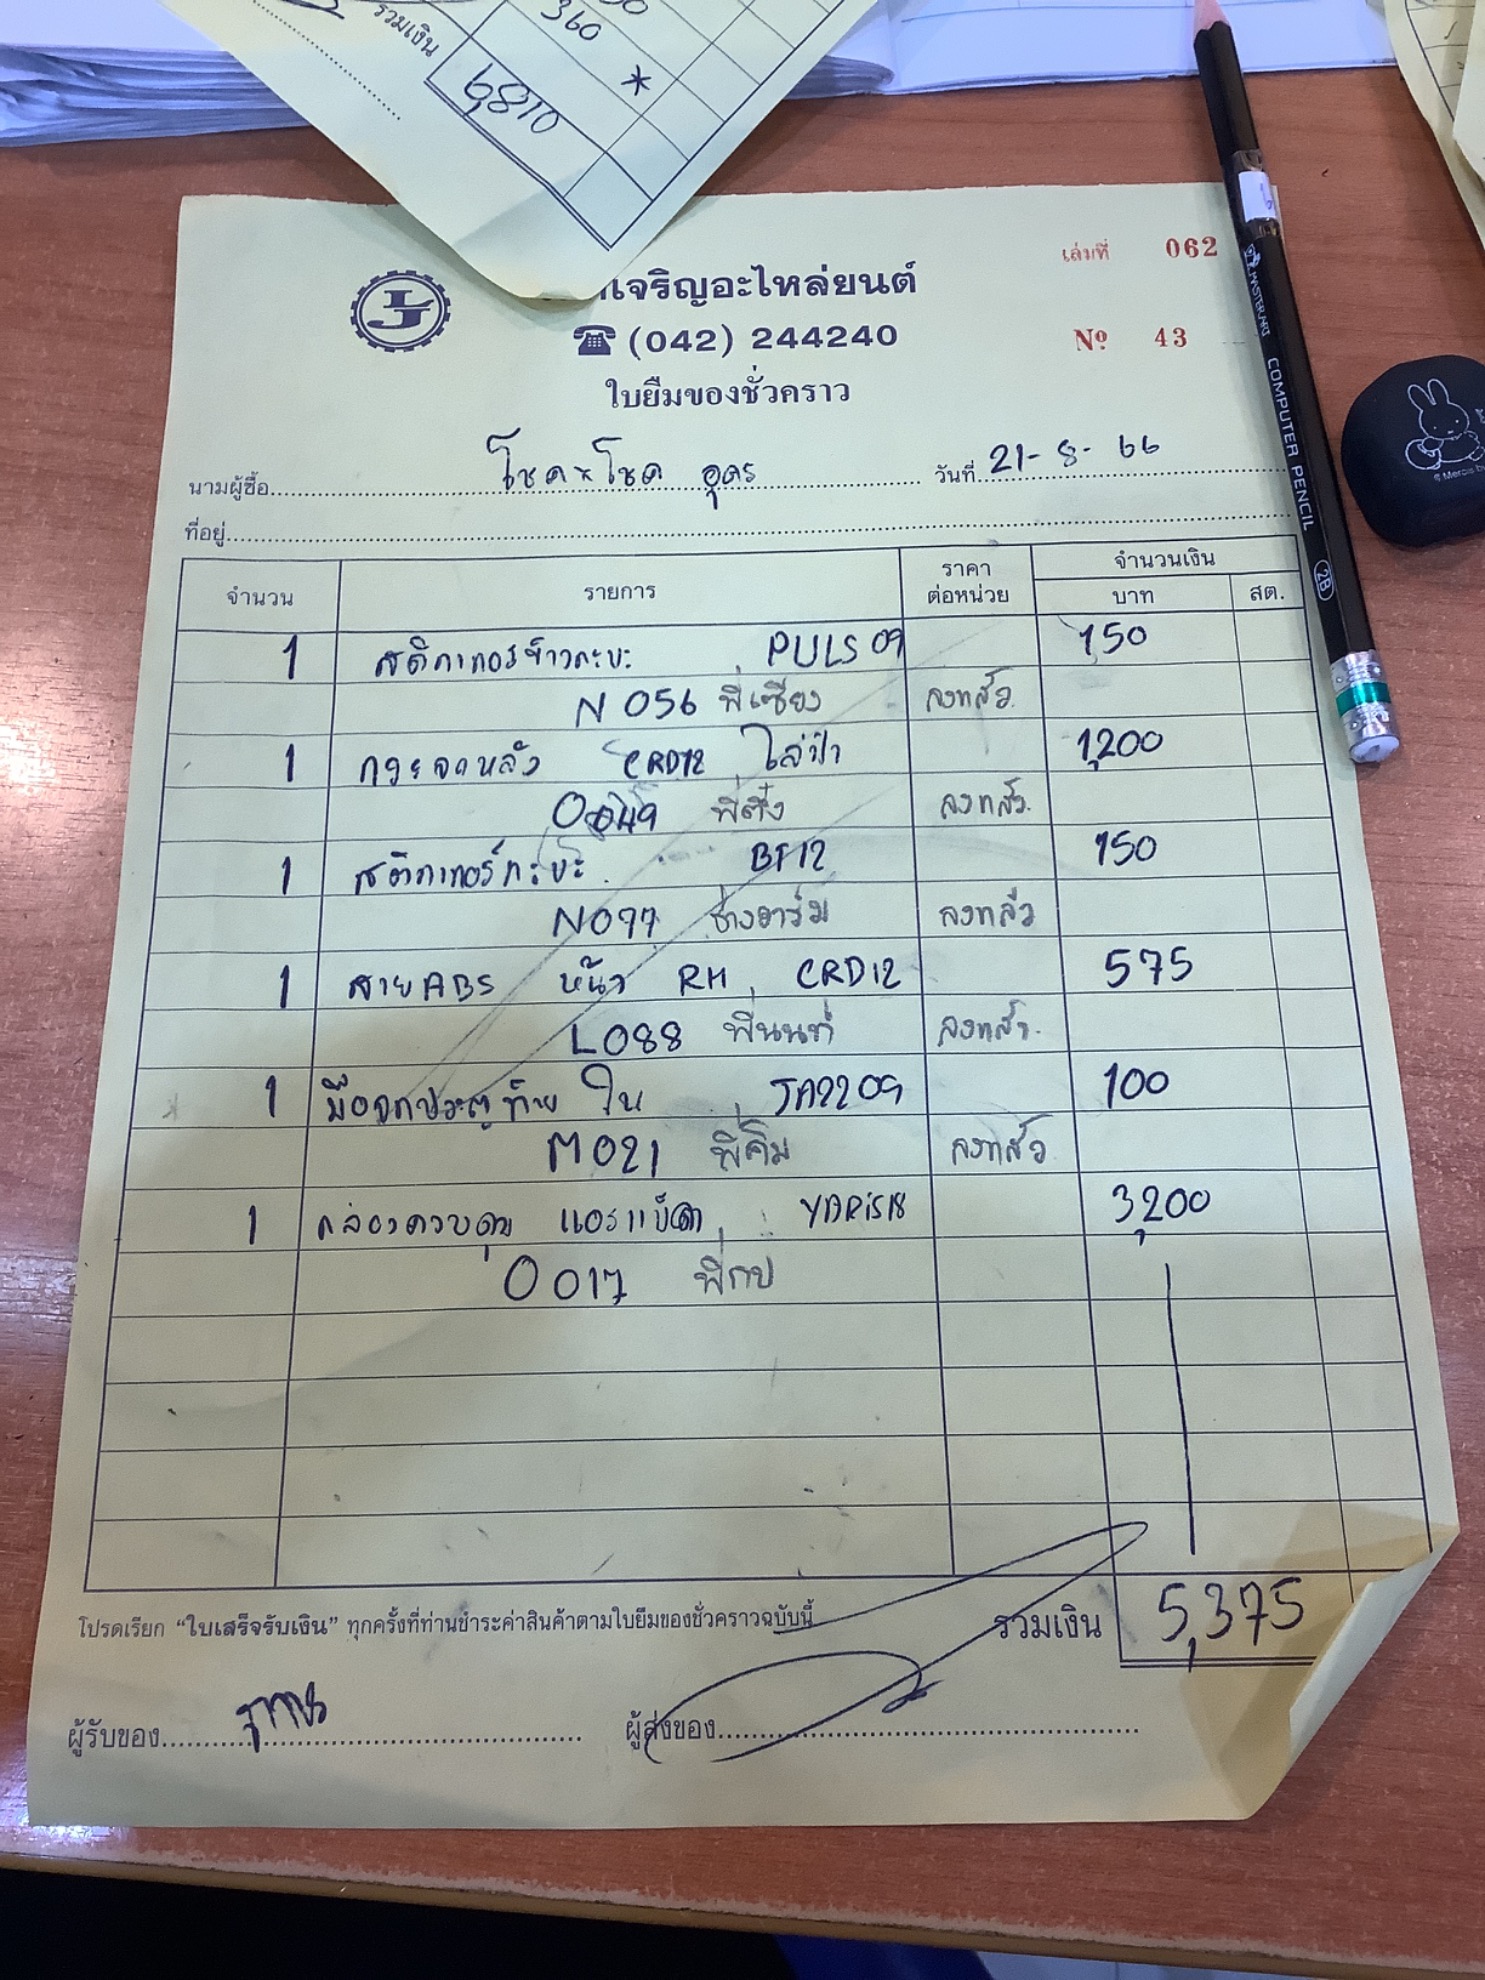 360
รวมเงิน
*
6,810
เล่มที่ 062
เจริญอะไหล่ยนต์
LJ
☎ (042) 244240
Nº 43
ใบยืมของชั่วคราว
นามผู้ซื้อ โชค~โชค อุดร วันที่ 21-8-66
ที่อยู่
จำนวน รายการ ราคาต่อหน่วย จำนวนเงิน
บาท สต.
1 สติกเกอร์ข้างกะบะ PULS 09 150
N 056 พี่เซียง ลงแล้ว
1 กระจกหลัง CRD12 ใส่ฝ้า 1,200
O 049 พี่ตึ๋ง ลงแล้ว
1 สติกเกอร์กะบะ BT12 150
N077 ช่างอาร์ม ลงแล้ว
1 สาย ABS หน้า RH CRD12 575
L088 พี่นนท์ ลงแล้ว
1 มือจกประตูท้าย ใน JA2209 100
M021 พี่คิม ลงแล้ว
1 กล่องควบคุม แอร์แบ็ค YARiS18 3,200
O 017 พี่กบ
โปรดเรียก "ใบเสร็จรับเงิน" ทุกครั้งที่ท่านชำระค่าสินค้าตามใบยืมของชั่วคราวฉบับนี้ รวมเงิน 5,375
ผู้รับของ ผู้ส่งของ
COMPUTER PENCIL 2B